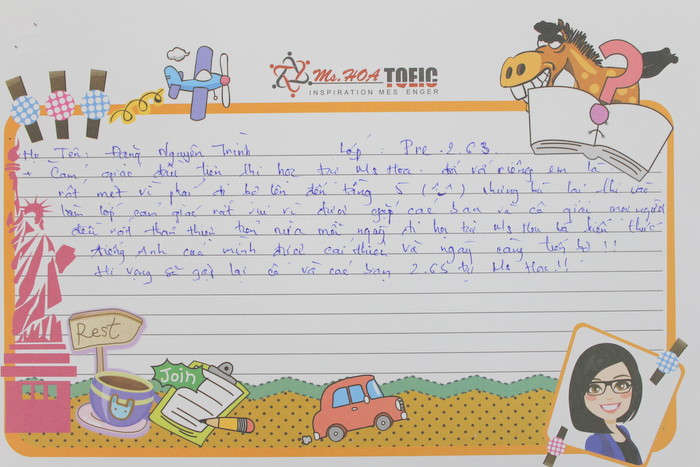 Ms. HOA TOEIC
INSPIRATION MESSENGER
Họ Tên: Đặng Nguyên Trinh Lớp: Pre 263
+ Cảm giác đầu tiên khi học tại Ms Hoa. đối với riêng em là
rất mệt vì phải đi bộ lên đến tầng 5 (^^) nhưng bù lại khi vào
lớp cảm giác rất vui vì được gặp các bạn và cô giáo mọi người
đều rất thân thiện hơn nữa mỗi ngày đi học tại Ms Hoa là kiến thức
tiếng Anh của mình được cải thiện và ngày càng tiến bộ !!
Hi vọng sẽ gặp lại cô và các bạn 2.65 tại Ms Hoa!!
Rest
Join